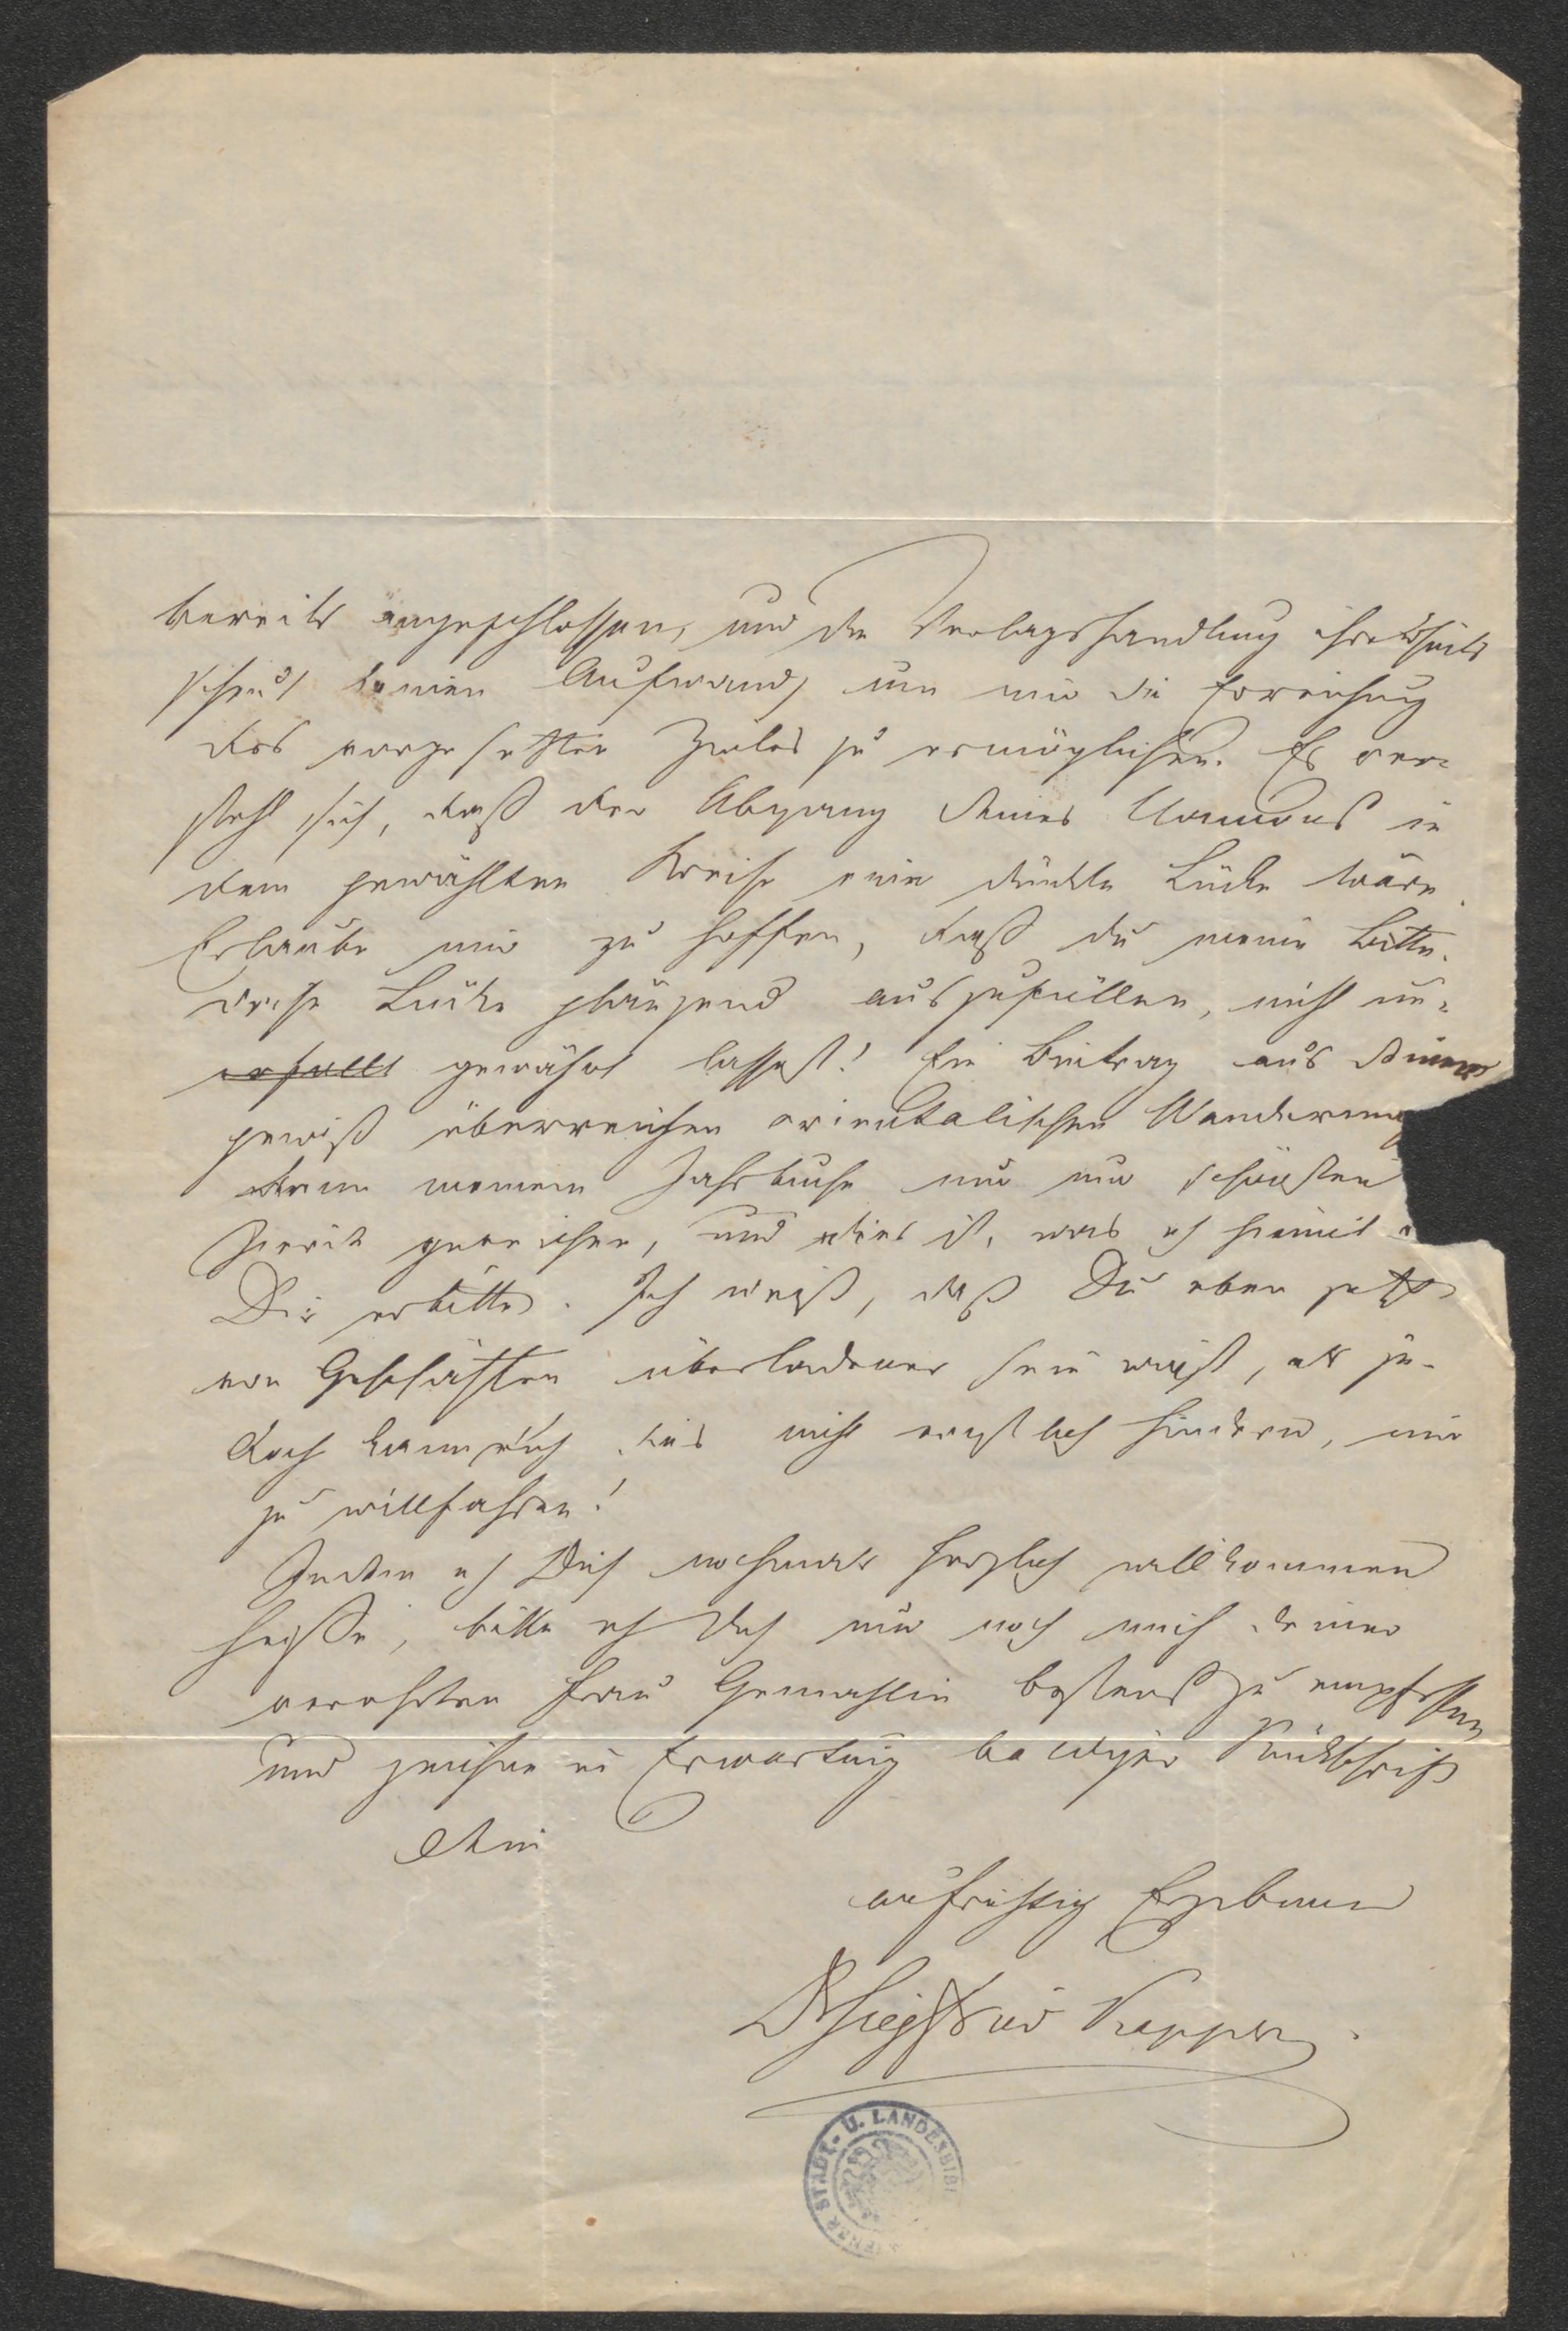 bereits angeschlossen, und die Verlagshandlung ihrerseits
scheut keinen Aufwand, um mir die Erreichung
des vorgesetzten Zieles zu ermöglichen. Es ver-
steht sich, daß der Abgang Deines Namens in
dem gewählten Kreise eine dunkle Lücke wäre.
Erlaube mir zu hoffen, daß du meine Bitte,
diese Lücke glänzend auszufüllen, nicht un-
erfüllt gewährt lassest! Ein Beitrag aus Deinen
gewiß überreichen orientalischen Wanderung
kann meinem Jahrbuche nur zur schönsten
Zierde gereichen, und dies ist, was ich hiemit
Dir erbitte. Ich weiß, daß Du eben jetzt
von Geschäften überladener sein mußt, als je.
Doch kann dich dies nicht ernstlich hindern, mir
zu willfahren!
Indem ich Dich nochmals herzlich willkommen
heiße, bitte ich Dich nur noch mich deiner
verehrten Frau Gemahlin bestens zu empfehlen
und zeichne in Erwartung baldiger Rückschrift
Dein
aufrichtig Ergebener
Dr Siegfried Kapper.
WIENER STADT- U. LANDESBIBL